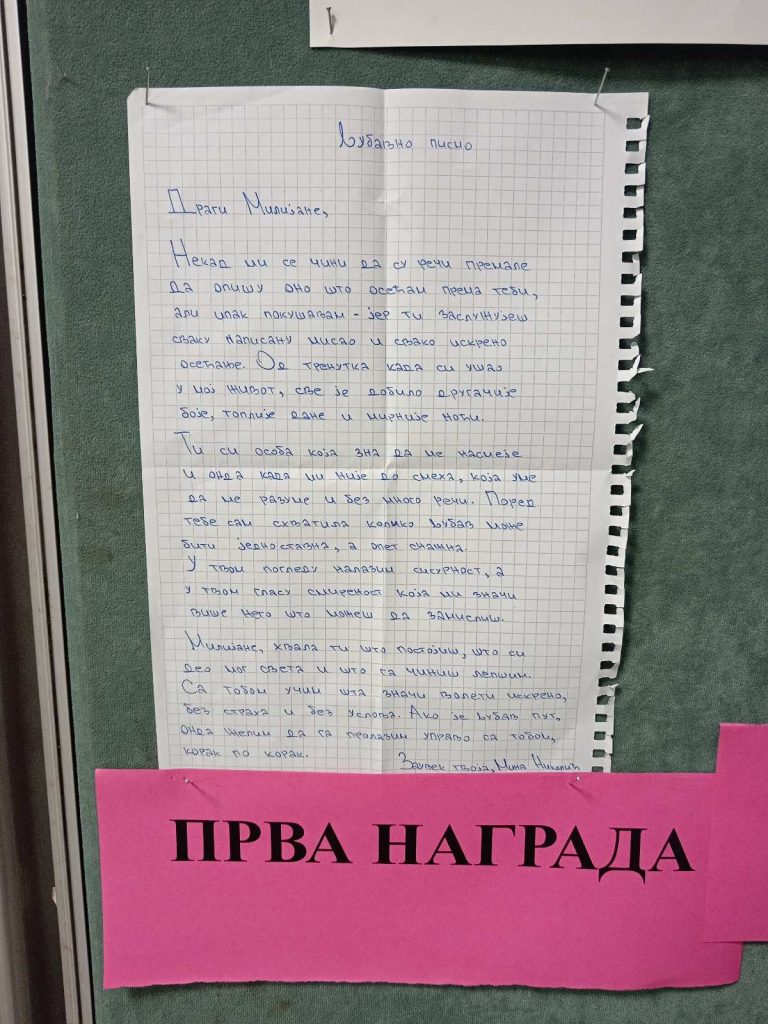 Љубавно писмо
Драги Милијане,
Некад ми се чини да су речи премале
да опишу оно што осећам према теби,
али ипак покушавам - јер ти заслужујеш
сваку написану мисао и свако искрено
осећање. Од тренутка када си ушао
у мој живот, све је добило другачије
боје, топлије дане и мирније ноћи.
Ти си особа која зна да ме насмеје
и онда када ми није до смеха, која уме
да ме разуме и без много речи. Поред
тебе сам схватила колико љубав може
бити једноставна, а опет снажна.
У твом погледу налазим сигурност, а
у твом гласу смиреност која ми значи
више него што можеш да замислиш.
Милијане, хвала ти што постојиш, што си
део мог света и што га чиниш лепшим.
Са тобом учим шта значи волети искрено,
без страха и без услова. Ако је љубав пут,
онда желим да га пролазим управо са тобом,
корак по корак.
Заувек твоја, Мина Николић
ПРВА НАГРАДА